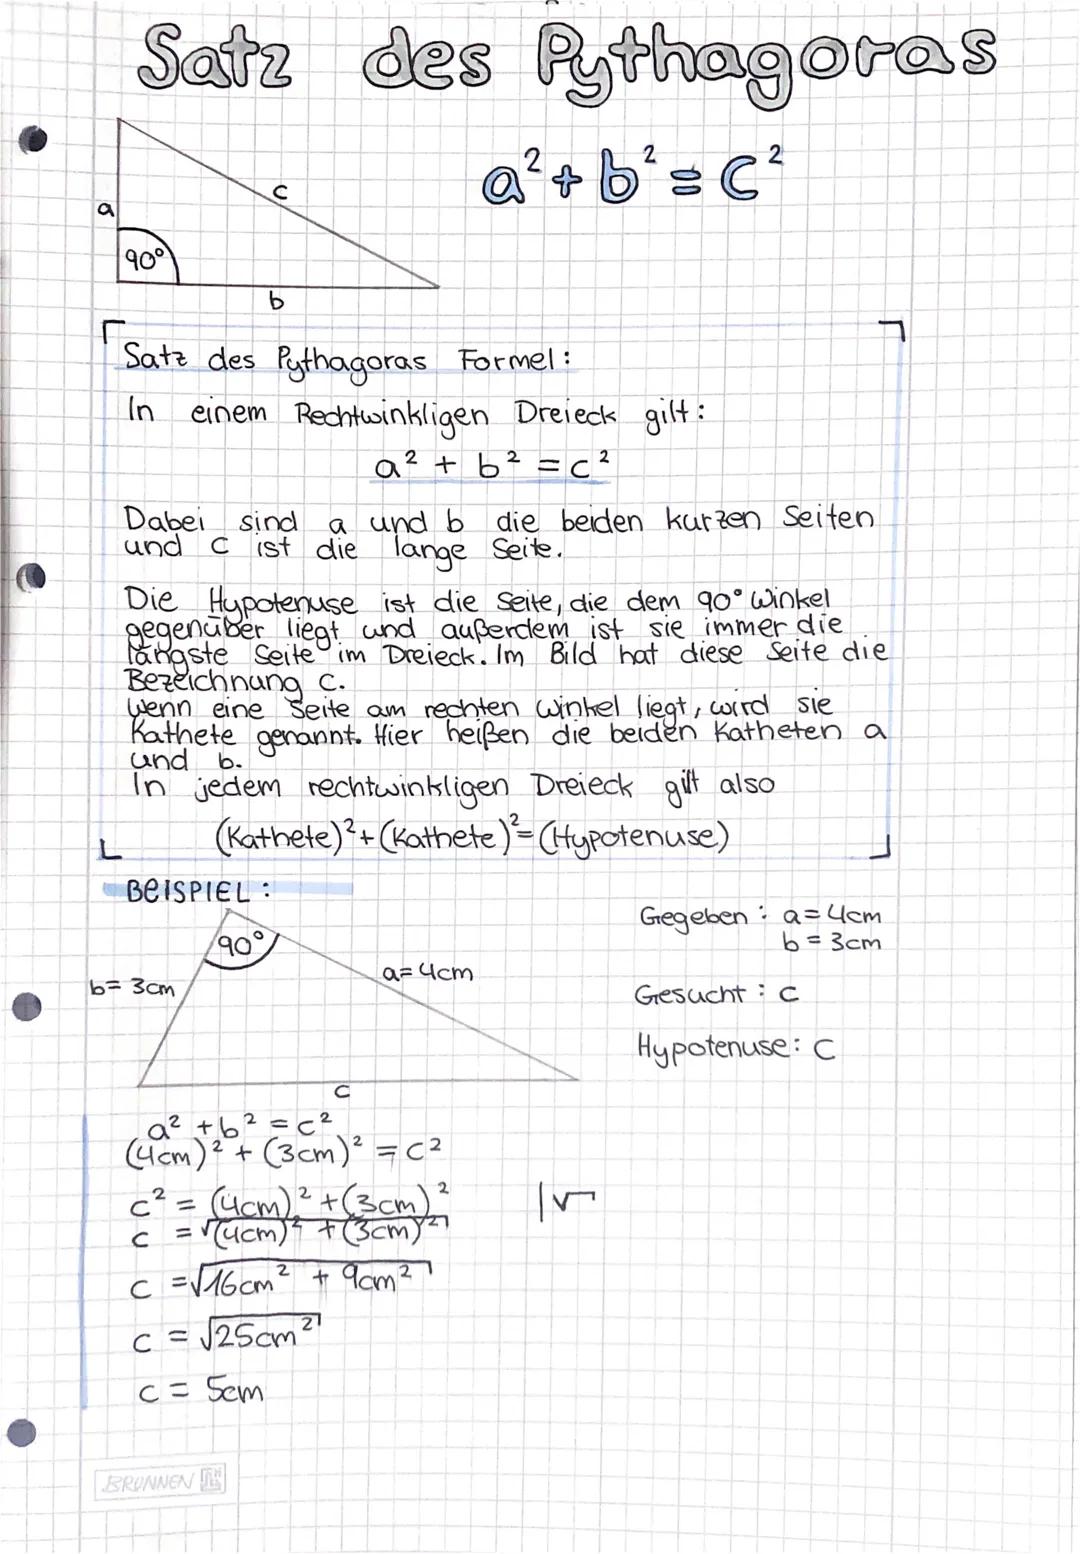 Satz des Pythagoras
a² + b² = c²
a
c
90°
b
Satz des Pythagoras Formel:
In einem Rechtwinkligen Dreieck gilt:
a² + b² = c²
Dabei sind a und b die beiden kurzen Seiten
und c ist die lange Seite.
Die Hypotenuse ist die Seite, die dem 90° Winkel
gegenüber liegt und außerdem ist sie immer die
längste Seite im Dreieck. Im Bild hat diese Seite die
Bezeichnung c.
Wenn eine Seite am rechten Winkel liegt, wird sie
Kathete genannt. Hier heißen die beiden Katheten a
und b.
In jedem rechtwinkligen Dreieck gilt also
(Kathete)² + (Kathete)² = (Hypotenuse)
BEISPIEL:
90°
b = 3cm
a = 4cm
c
Gegeben: a = 4cm
b = 3cm
Gesucht: c
Hypotenuse: c
a² + b² = c²
(4cm)² + (3cm)² = c²
c² = (4cm)² + (3cm)² |√
c = √(4cm)² + (3cm)²
c = √16cm² + 9cm²
c = √25cm²
c = 5cm
BRUNNEN